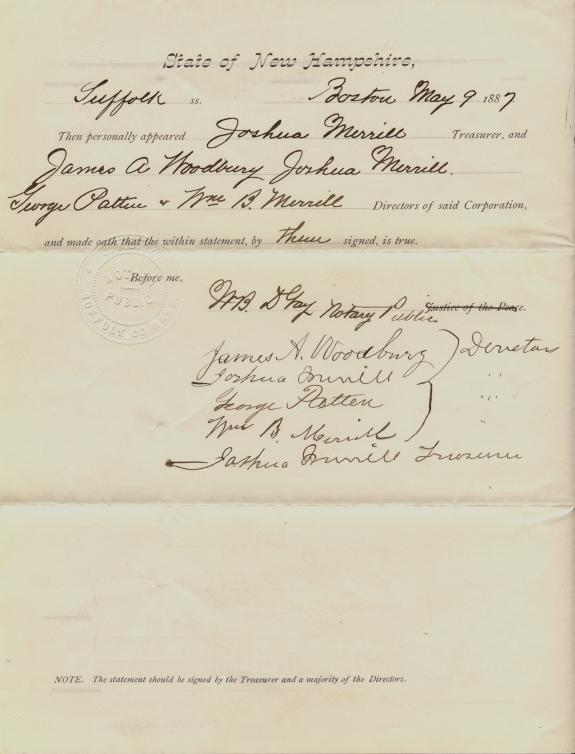 State of New Hampshire,
Suffolk ss. Boston May 9 1887
Then personally appeared Joshua Merrill Treasurer, and
James A Woodbury Joshua Merrill.
George Patten & Wm B. Merrill Directors of said Corporation,
and made oath that the within statement, by them signed, is true.
Before me,
NOTARY PUBLIC
SUFFOLK CO.
W.B. Notary Public Justice of the Peace.
James A. Woodbury Directors
Joshua Merrill "
George Patten "
Wm B. Merrill "
Joshua Merrill Treasurer
NOTE. The statement should be signed by the Treasurer and a majority of the Directors.